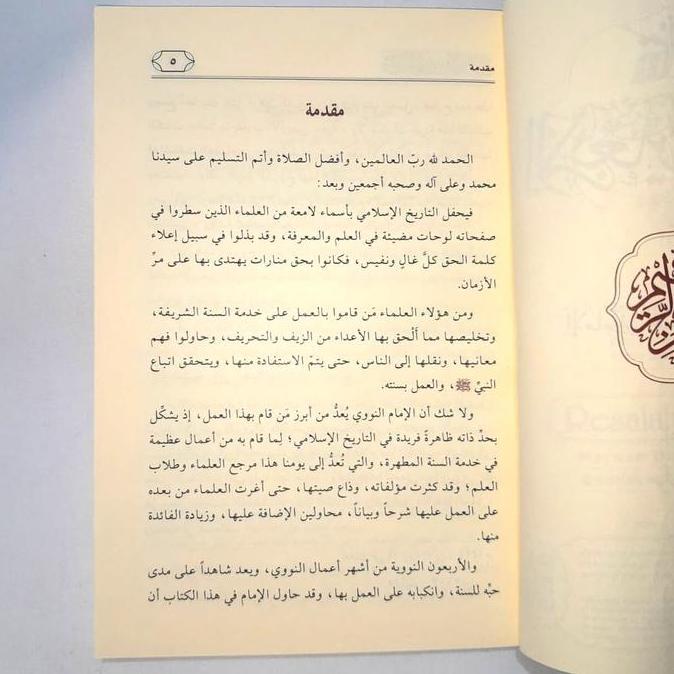 مقدمة
٥
مقدمة
الحمد لله ربّ العالمين، وأفضل الصلاة وأتم التسليم على سيدنا
محمد وعلى آله وصحبه أجمعين وبعد:
فيحفل التاريخ الإسلامي بأسماء لامعة من العلماء الذين سطروا في
صفحاته لوحات مضيئة في العلم والمعرفة، وقد بذلوا في سبيل إعلاء
كلمة الحق كلَّ غالٍ ونفيس، فكانوا بحق منارات يهتدى بها على مرِّ
الأزمان.
ومن هؤلاء العلماء مَن قاموا بالعمل على خدمة السنة الشريفة،
وتخليصها مما ألْحق بها الأعداء من الزيف والتحريف، وحاولوا فهم
معانيها، ونقلها إلى الناس، حتى يتمّ الاستفادة منها، ويتحقق اتباع
النبيِّ ﷺ، والعمل بسنته.
ولا شك أن الإمام النووي يُعدُّ من أبرز مَن قام بهذا العمل، إذ يشكِّل
بحدِّ ذاته ظاهرةً فريدة في التاريخ الإسلامي؛ لِما قام به من أعمال عظيمة
في خدمة السنة المطهرة، والتي تُعدُّ إلى يومنا هذا مرجع العلماء وطلاب
العلم؛ وقد كثرت مؤلفاته، وذاع صيتها، حتى أغرت العلماء من بعده
على العمل عليها شرحاً وبياناً، محاولين الإضافة عليها، وزيادة الفائدة
منها.
والأربعون النووية من أشهر أعمال النووي، ويعد شاهداً على مدى
حبِّه للسنة، وانكبابه على العمل بها، وقد حاول الإمام في هذا الكتاب أن